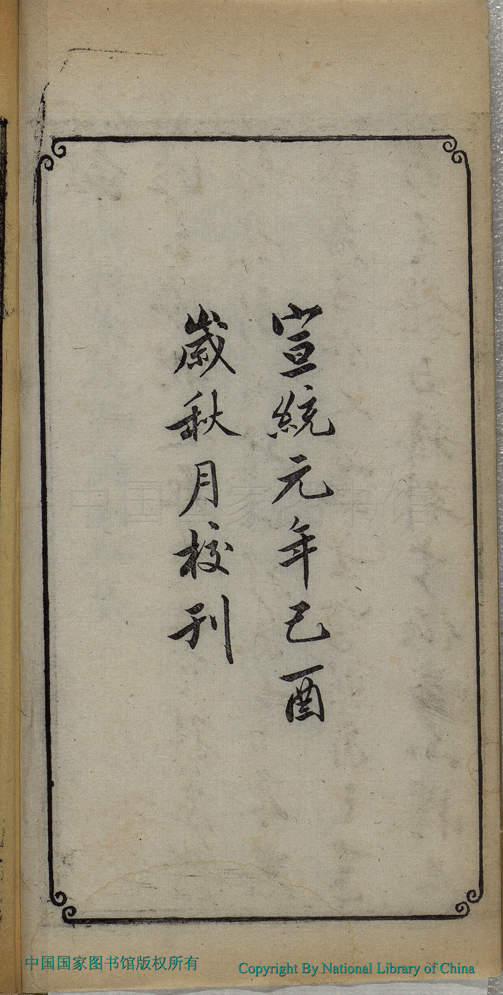 宣統元年己酉
歲秋月校刊
中国国家图书馆
中国国家图书馆版权所有
Copyright By National Library of China